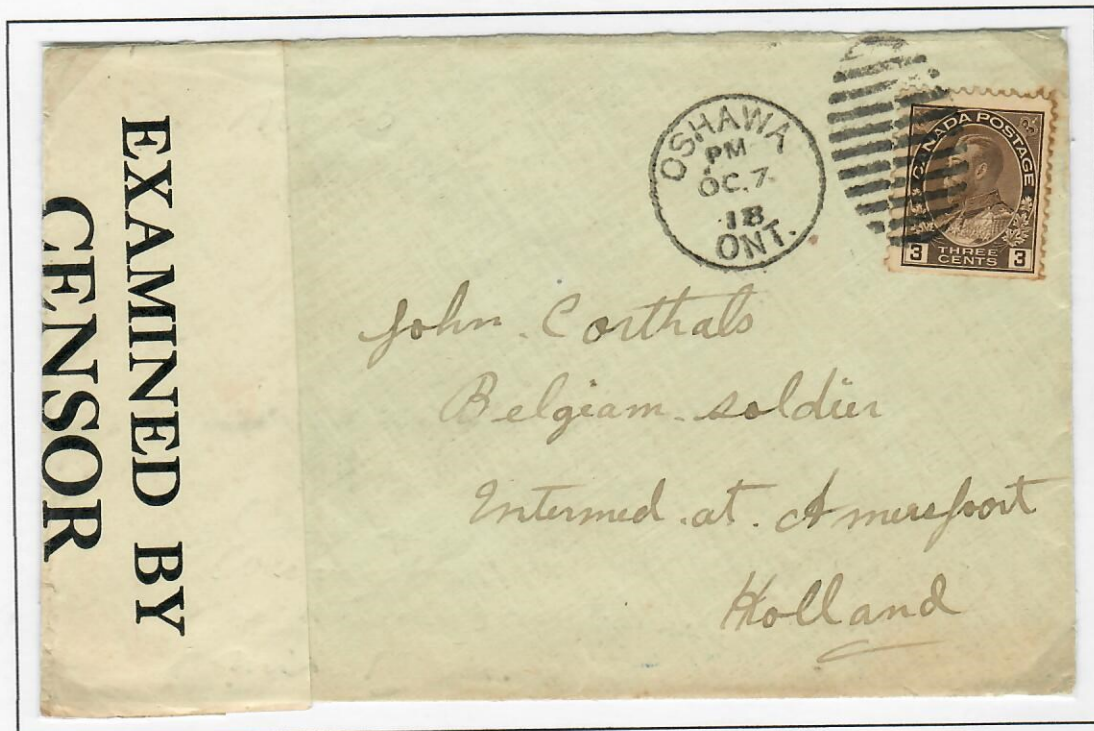 EXAMINED BY
CENSOR
OSHAWA
PM
OC. 7.
18
ONT.
CANADA POSTAGE
3 THREE CENTS 3
John. Corthals
Belgiam. soldier
Intermed. at. Amersfoort
Holland